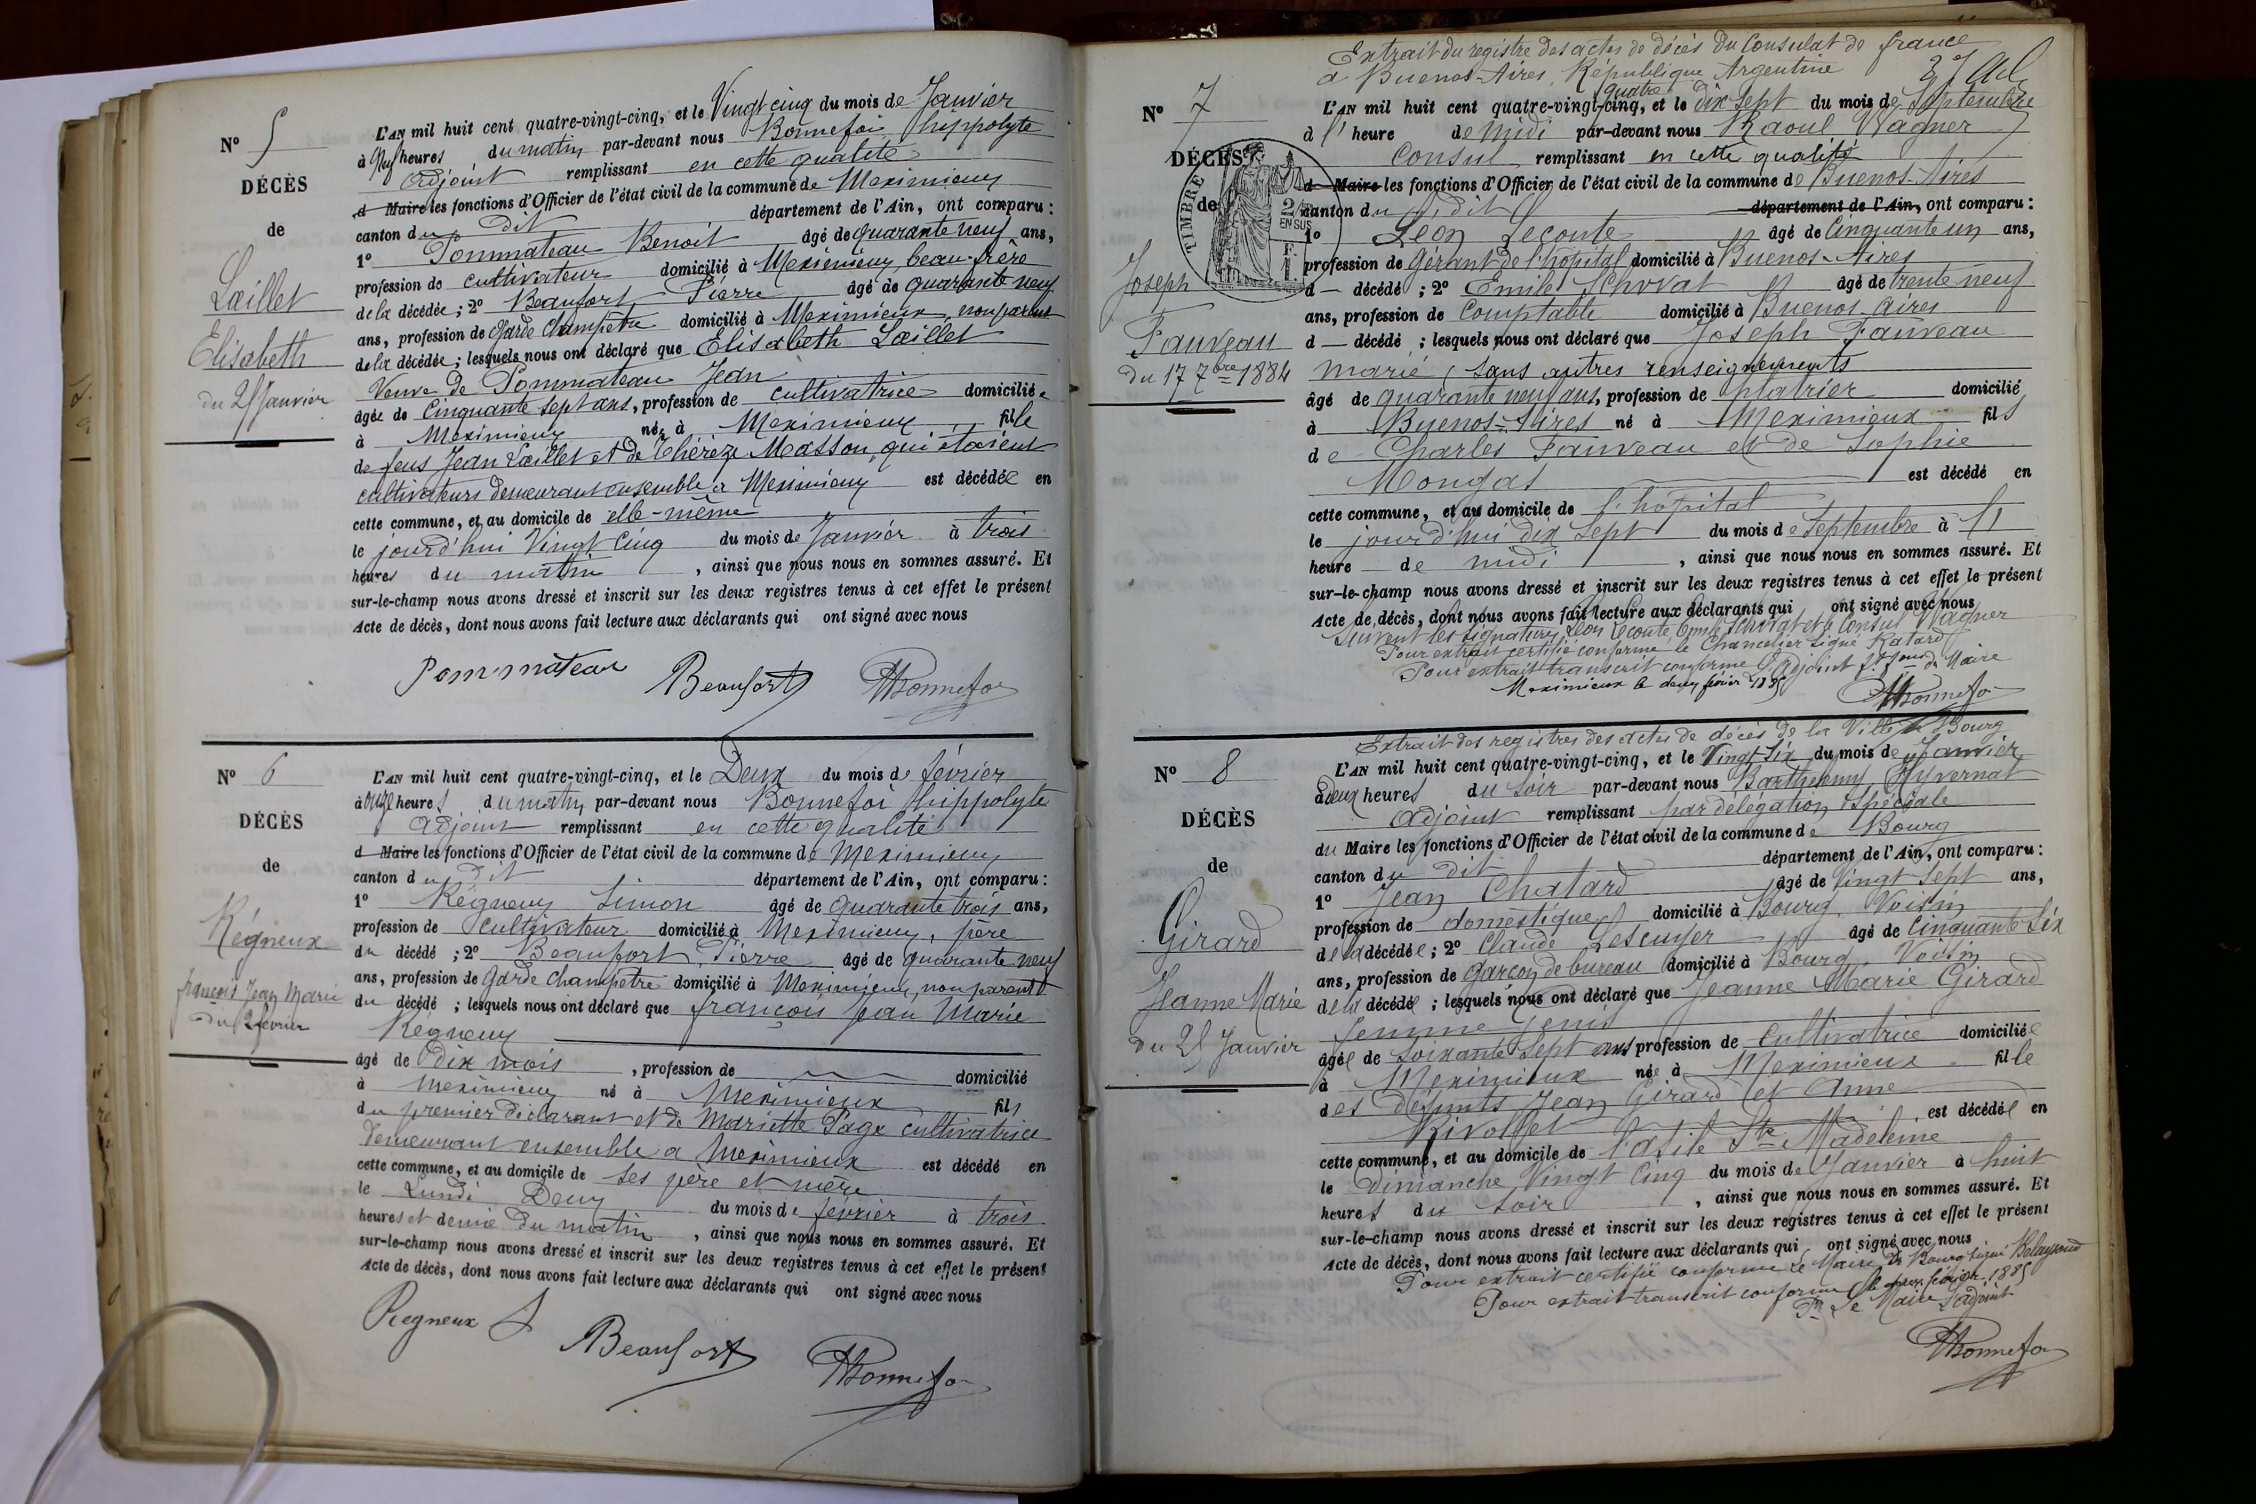 N° 5
DÉCÈS
de
Laillet
Elisabeth
du 25 Janvier
L'AN mil huit cent quatre-vingt-cinq, et le Vingt cinq du mois de Janvier
à Neuf heures du matin par-devant nous Bonnefoi hippolyte
adjoint remplissant en cette qualité
d Maire les fonctions d'Officier de l'état civil de la commune de Meximieux
canton du dit département de l'Ain, ont comparu :
1° Pommateau Benoit âgé de quarante neuf ans,
profession de cultivateur domicilié à Meximieux, beau-frère
de la décédée ; 2° Beaufort Pierre âgé de quarante neuf
ans, profession de Garde Champêtre domicilié à Meximieux, non parent
de la décédée ; lesquels nous ont déclaré que Elisabeth Laillet
Veuve de Pommateau Jean
âgée de Cinquante sept ans, profession de cultivatrice domiciliée
à Meximieux née à Meximieux fille
de feus Jean Laillet et de Thérèze Masson, qui étaient
cultivateurs demeurant ensemble à Meximieux est décédée en
cette commune, et au domicile de elle-même
le jourd'hui Vingt Cinq du mois de Janvier à trois
heures du matin , ainsi que nous nous en sommes assuré. Et
sur-le-champ nous avons dressé et inscrit sur les deux registres tenus à cet effet le présent
Acte de décès, dont nous avons fait lecture aux déclarants qui ont signé avec nous
Pommateau Beaufort HBonnefoi
N° 6
DÉCÈS
de
Régneux
françois Jean Marie
du 2 février
L'AN mil huit cent quatre-vingt-cinq, et le Deux du mois de février
à onze heures du matin par-devant nous Bonnefoi hippolyte
adjoint remplissant en cette qualité
d Maire les fonctions d'Officier de l'état civil de la commune de Meximieux
canton du dit département de l'Ain, ont comparu :
1° Régneux Simon âgé de quarante trois ans,
profession de Cultivateur domicilié à Meximieux, père
du décédé ; 2° Beaufort Pierre âgé de quarante neuf
ans, profession de Garde Champêtre domicilié à Meximieux, non parent
du décédé ; lesquels nous ont déclaré que françois Jean Marie
Régneux
âgé de dix mois , profession de domicilié
à Meximieux né à Meximieux fils
du premier déclarant et de Mariette Page cultivatrice
demeurant ensemble à Meximieux est décédé en
cette commune, et au domicile de ses père et mère
le Lundi Deux du mois de février à trois
heures et demie du matin , ainsi que nous nous en sommes assuré. Et
sur-le-champ nous avons dressé et inscrit sur les deux registres tenus à cet effet le présent
Acte de décès, dont nous avons fait lecture aux déclarants qui ont signé avec nous
Regneux S Beaufort HBonnefoi
Extrait du registre des actes de décès du Consulat de france
à Buenos-Aires, République Argentine
N° 7
DÉCÈS
de
TIMBRE
2/10 EN SUS
F
Joseph
Fauveau
du 17 7bre 1884
quatre
L'AN mil huit cent quatre-vingt-cinq, et le dix sept du mois de Septembre
à l'heure de midi par-devant nous Raoul Wagner
Consul remplissant en cette qualité
d Maire les fonctions d'Officier de l'état civil de la commune de Buenos-Aires
canton du dit département de l'Ain, ont comparu :
1° Léon Leconte âgé de Cinquante un ans,
profession de Gérant de l'hôpital domicilié à Buenos-Aires
d décédé ; 2° Emile Schrrat âgé de trente neuf
ans, profession de Comptable domicilié à Buenos aires
d décédé ; lesquels nous ont déclaré que Joseph Fauveau
marié, sans autres renseignements
âgé de quarante neuf ans, profession de platrier domicilié
à Buenos-Aires né à Meximieux fils
de Charles Fauveau et de Sophie
Mongat est décédé en
cette commune, et au domicile de l'hôpital
le jourd'hui dix sept du mois de Septembre à
heure de midi , ainsi que nous nous en sommes assuré. Et
sur-le-champ nous avons dressé et inscrit sur les deux registres tenus à cet effet le présent
Acte de décès, dont nous avons fait lecture aux déclarants qui ont signé avec nous
Suivent les signatures Léon Leconte Emile Schrrat et le Consul Wagner
Pour extrait certifié conforme le Chancelier signé Ratard
Pour extrait transcrit conforme l'adjoint du Maire
Meximieux le deux février 1885
HBonnefoi
Extrait des registres des actes de décès de la Ville de Bourg
N° 8
DÉCÈS
de
Girard
Jeanne Marie
du 25 Janvier
L'AN mil huit cent quatre-vingt-cinq, et le Vingt Six du mois de Janvier
à deux heures du Soir par-devant nous Barthélemy Hyvernat
adjoint remplissant par délégation spéciale
du Maire les fonctions d'Officier de l'état civil de la commune de Bourg
canton du dit département de l'Ain, ont comparu :
1° Jean Chatard âgé de Vingt Sept ans,
profession de domestique domicilié à Bourg, Voisin
de la décédée ; 2° Claude Lescuyer âgé de Cinquante Six
ans, profession de garçon de bureau domicilié à Bourg, Voisin
de la décédée ; lesquels nous ont déclaré que Jeanne Marie Girard
femme Jenis
âgée de Soixante Sept ans profession de Cultivatrice domiciliée
à Meximieux née à Meximieux fille
des défunts Jean Girard et Anne
Rivollet est décédée en
cette commune, et au domicile de l'asile Ste Madeleine
le Dimanche Vingt Cinq du mois de Janvier à huit
heures du Soir , ainsi que nous nous en sommes assuré. Et
sur-le-champ nous avons dressé et inscrit sur les deux registres tenus à cet effet le présent
Acte de décès, dont nous avons fait lecture aux déclarants qui ont signé avec nous
Pour extrait certifié conforme Le Maire de Bourg signé
Pour extrait transcrit conforme le deux février 1885
Pr Le Maire l'adjoint
HBonnefoi